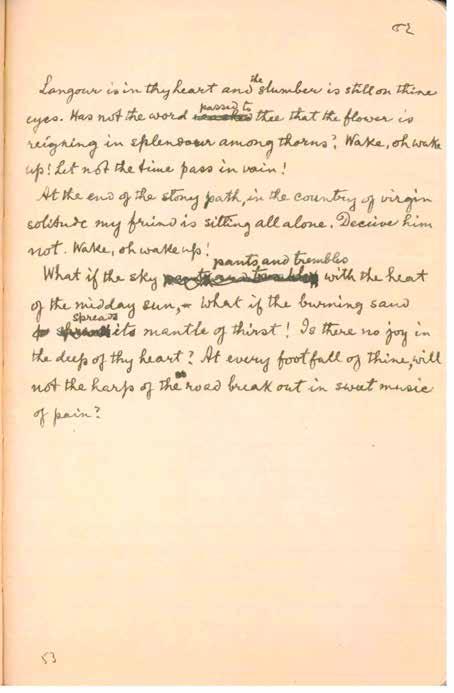 ৫২
Langour is in thy heart and the slumber is still on thine
eyes. Has not the word passed to thee that the flower is
reigning in splendour among thorns? Wake, oh wake
up! Let not the time pass in vain!
At the end of the stony path, in the country of virgin
solitude my friend is sitting all alone. Deceive him
not. Wake, oh wake up!
What if the sky pants and trembles with the heat
of the midday sun, – what if the burning sand
spreads its mantle of thirst! Is there no joy in
the deep of thy heart? At every footfall of thine, will
not the harp of the road break out in sweet music
of pain?
53